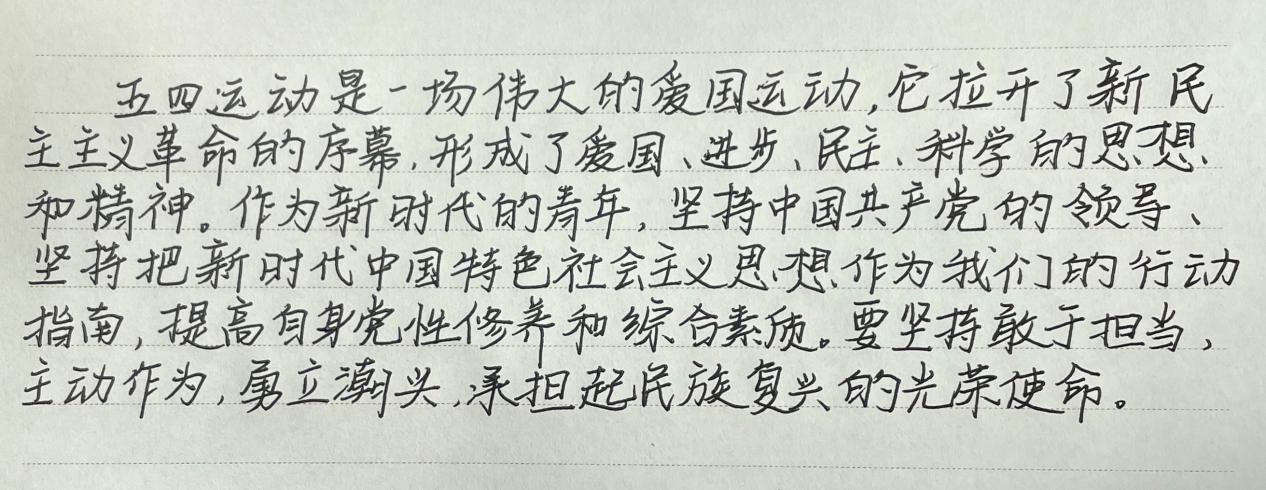 五四运动是一场伟大的爱国运动,它拉开了新民
主主义革命的序幕,形成了爱国、进步、民主、科学的思想
和精神。作为新时代的青年,坚持中国共产党的领导、
坚持把新时代中国特色社会主义思想作为我们的行动
指南,提高自身党性修养和综合素质。要坚持敢于担当,
主动作为,勇立潮头,承担起民族复兴的光荣使命。